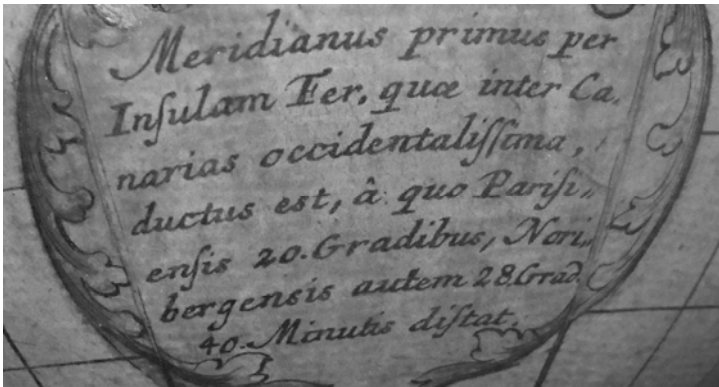 Meridianus primus per
Inſulam Fer, quæ inter Ca,
narias occidentaliſſima,
ductus est, â quo Pariſi„
enſis 20. Gradibus, Nori„
bergensis autem 28. Grad.
40. Minutis diſtat.